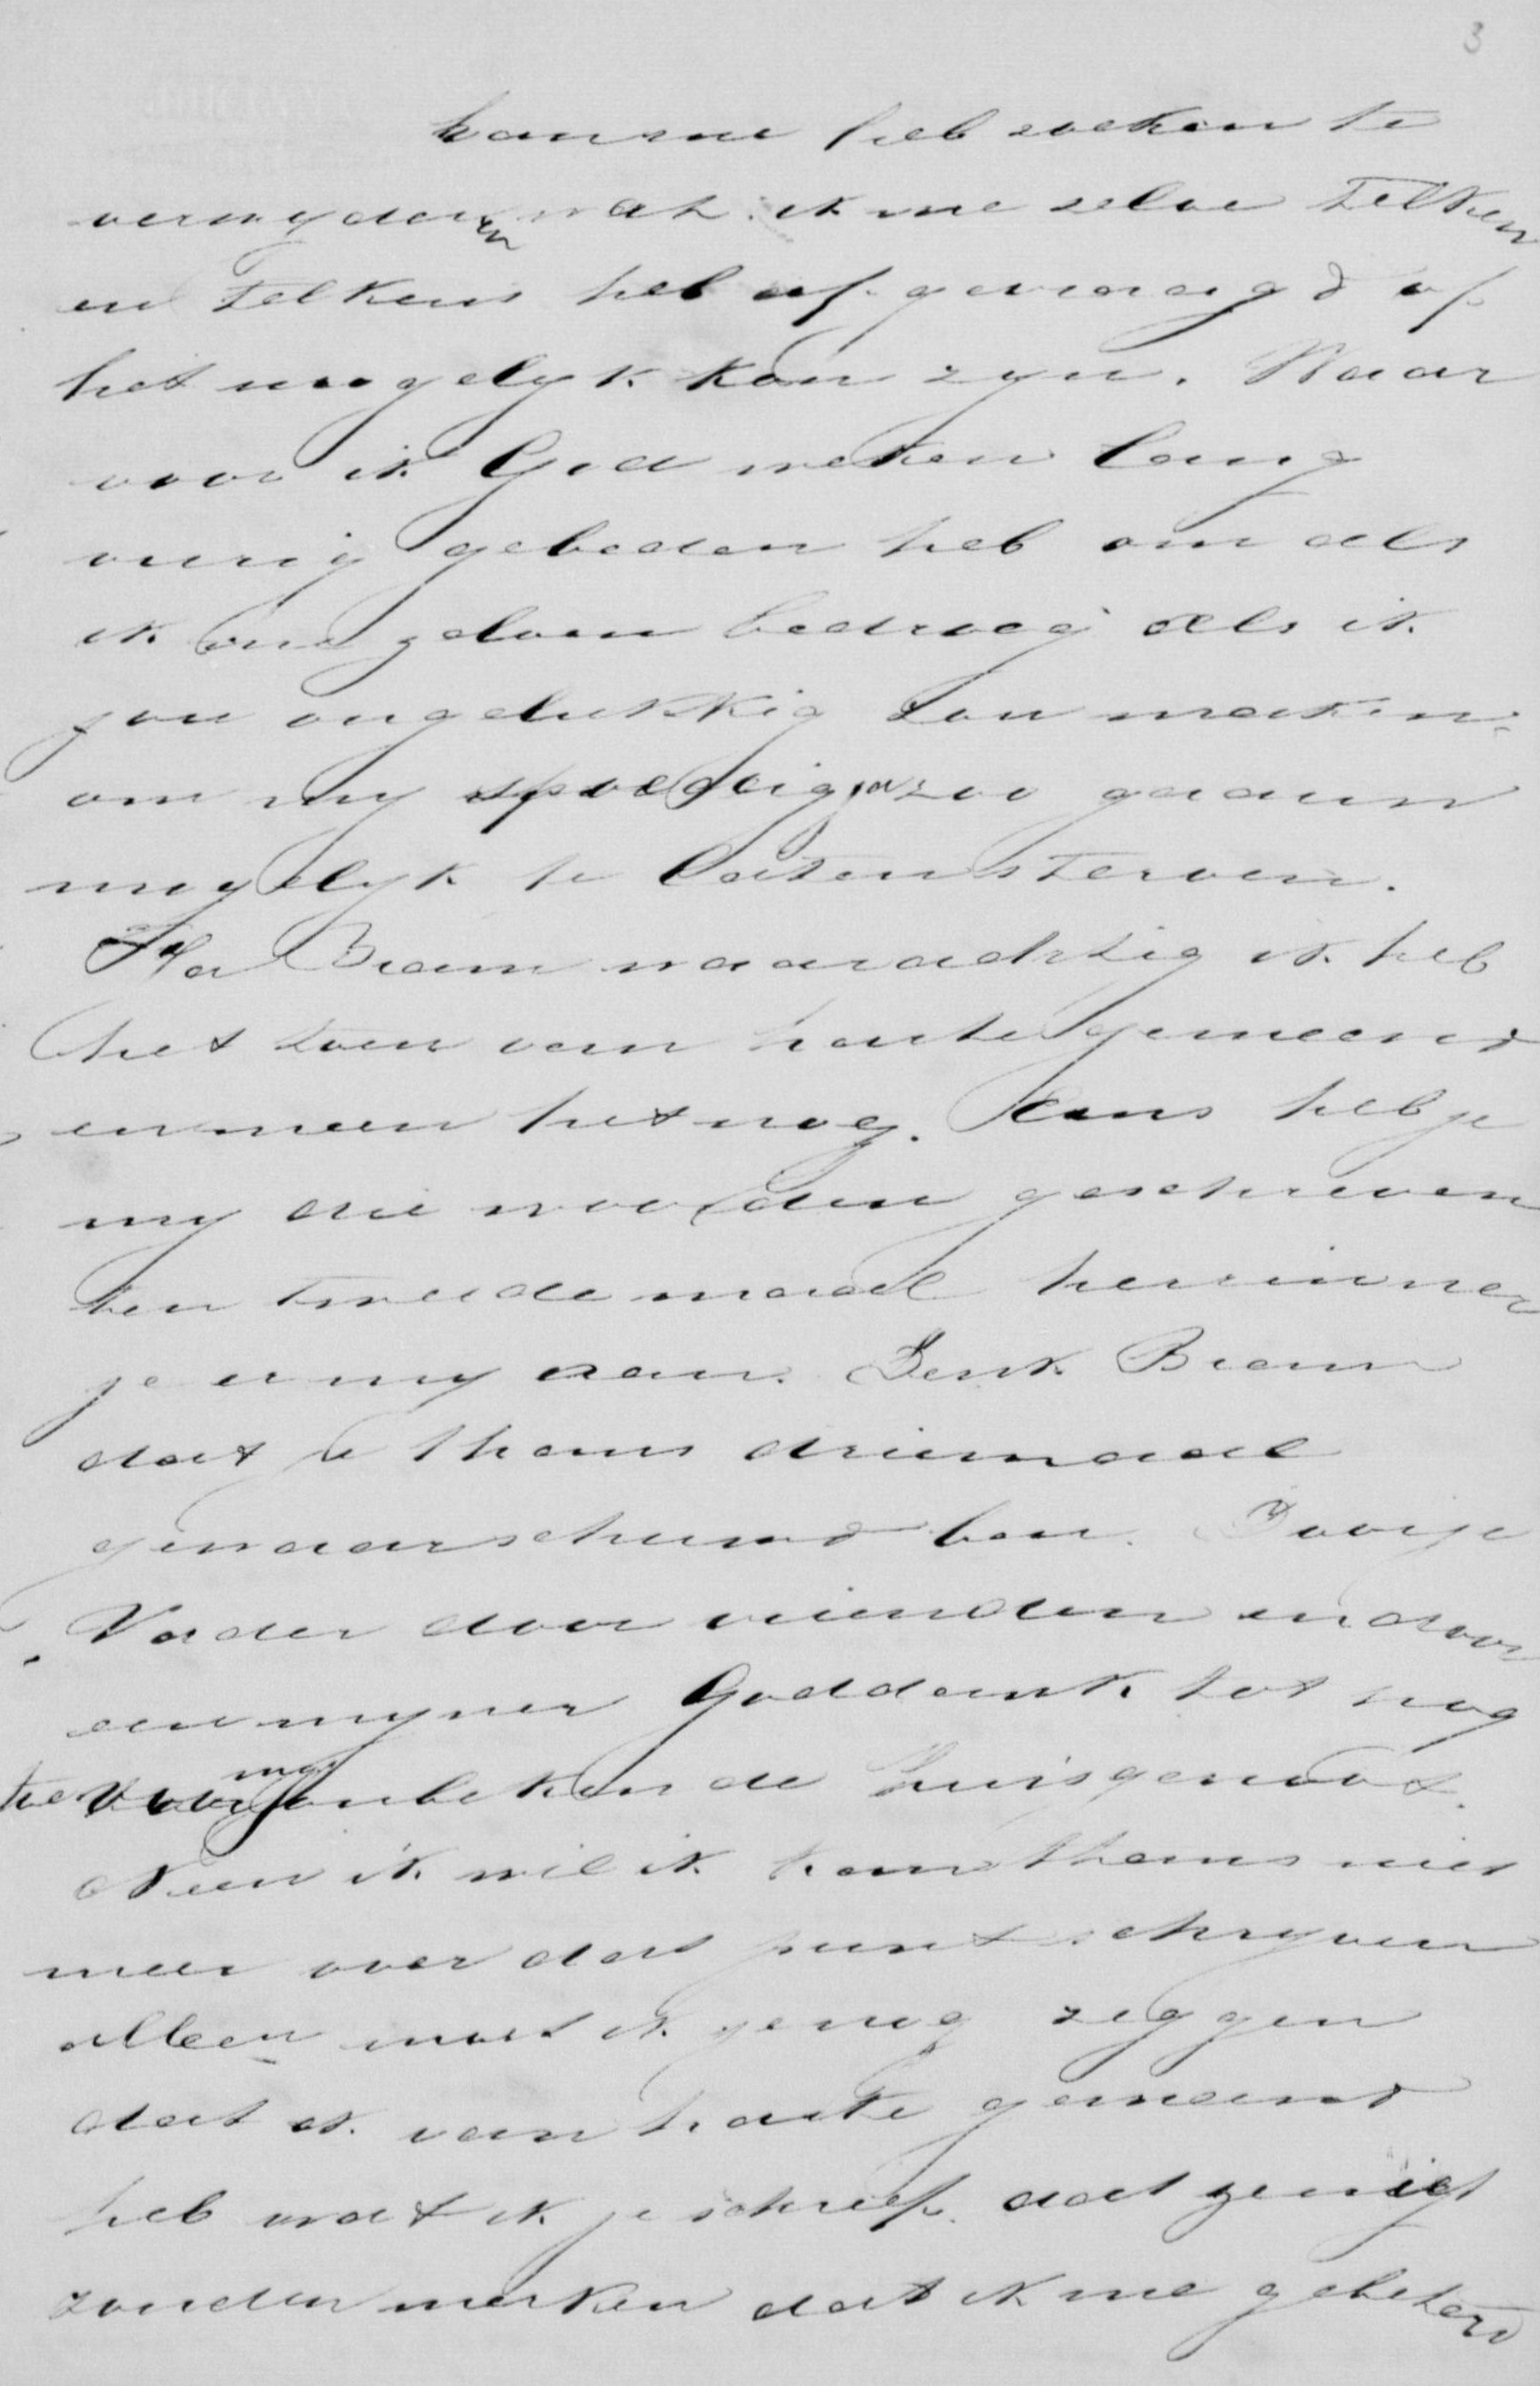 3
kanrne heb zoeken te
vermyden en wat ik me zelve telken
en telkens heb afgevraagd of
het mogelyk kon zyn. Waar
voor ik God weken lang
vurig gebeden heb om als
ik me zelven bedroog als ik
jou ongelukkig zou maken,
om my spoedig zoo gaauw
mogelyk te laten sterven.
Ha Bram waarachtig ik heb
het toen van harte gemeend
en meen het nog. Eens heb je
my die woorden geschreven
ten tweede maal herinner
je er my aan. Denk Bram
dat u thans driemaal
gewaarschuwd ben. Door je
Vader door vrienden en door
een myner Goddank tot nog
toe voor my onbekende huisgenoot.
Neen ik wil ik kan thans niet
meer over dat punt schryven
alleen moet ik je nog zeggen
dat ik van harte gemeend
heb wat ik je schreef. dat ge niet
zonder merken dat ik me gebeterd